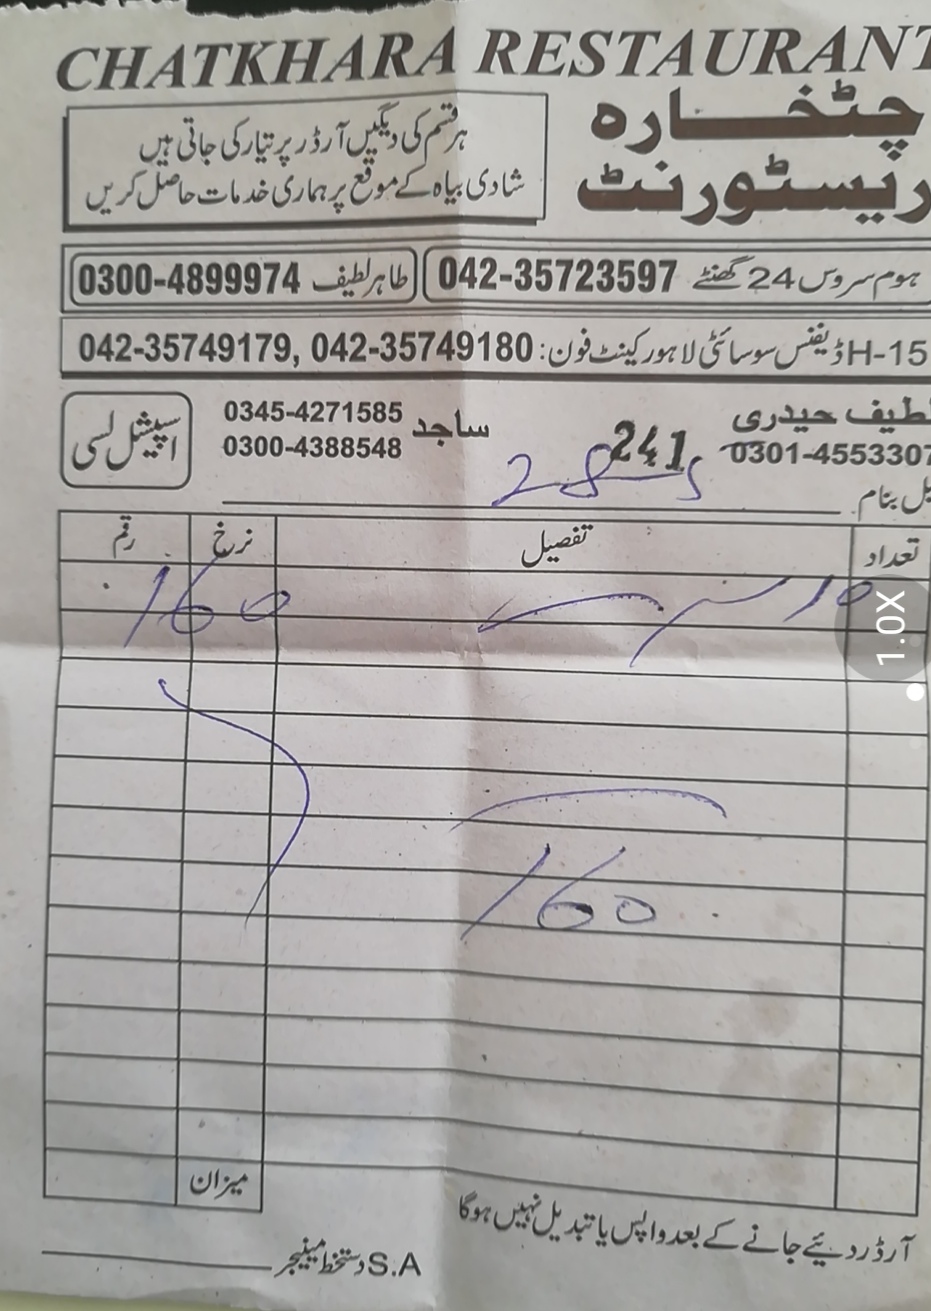 CHATKHARA RESTAURANT
چٹخارہ
ریسٹورنٹ
ہر قسم کی دیگیں آرڈر پر تیار کی جاتی ہیں
شادی بیاہ کے موقع پر ہماری خدمات حاصل کریں
ہوم سروس 24 گھنٹے 042-35723597
طاہر لطیف 0300-4899974
H-15 ڈیفنس سوسائٹی لاہور کینٹ فون: 042-35749179, 042-35749180
لطیف حیدری
0301-4553307
241
ساجد 0345-4271585
0300-4388548
اسپیشل لسی
28-5
بل بنام
تعداد تفصیل نرخ رقم
10 160
160
میزان
آرڈر دیئے جانے کے بعد واپس یا تبدیل نہیں ہوگا
S.A دستخط مینیجر
1.0X